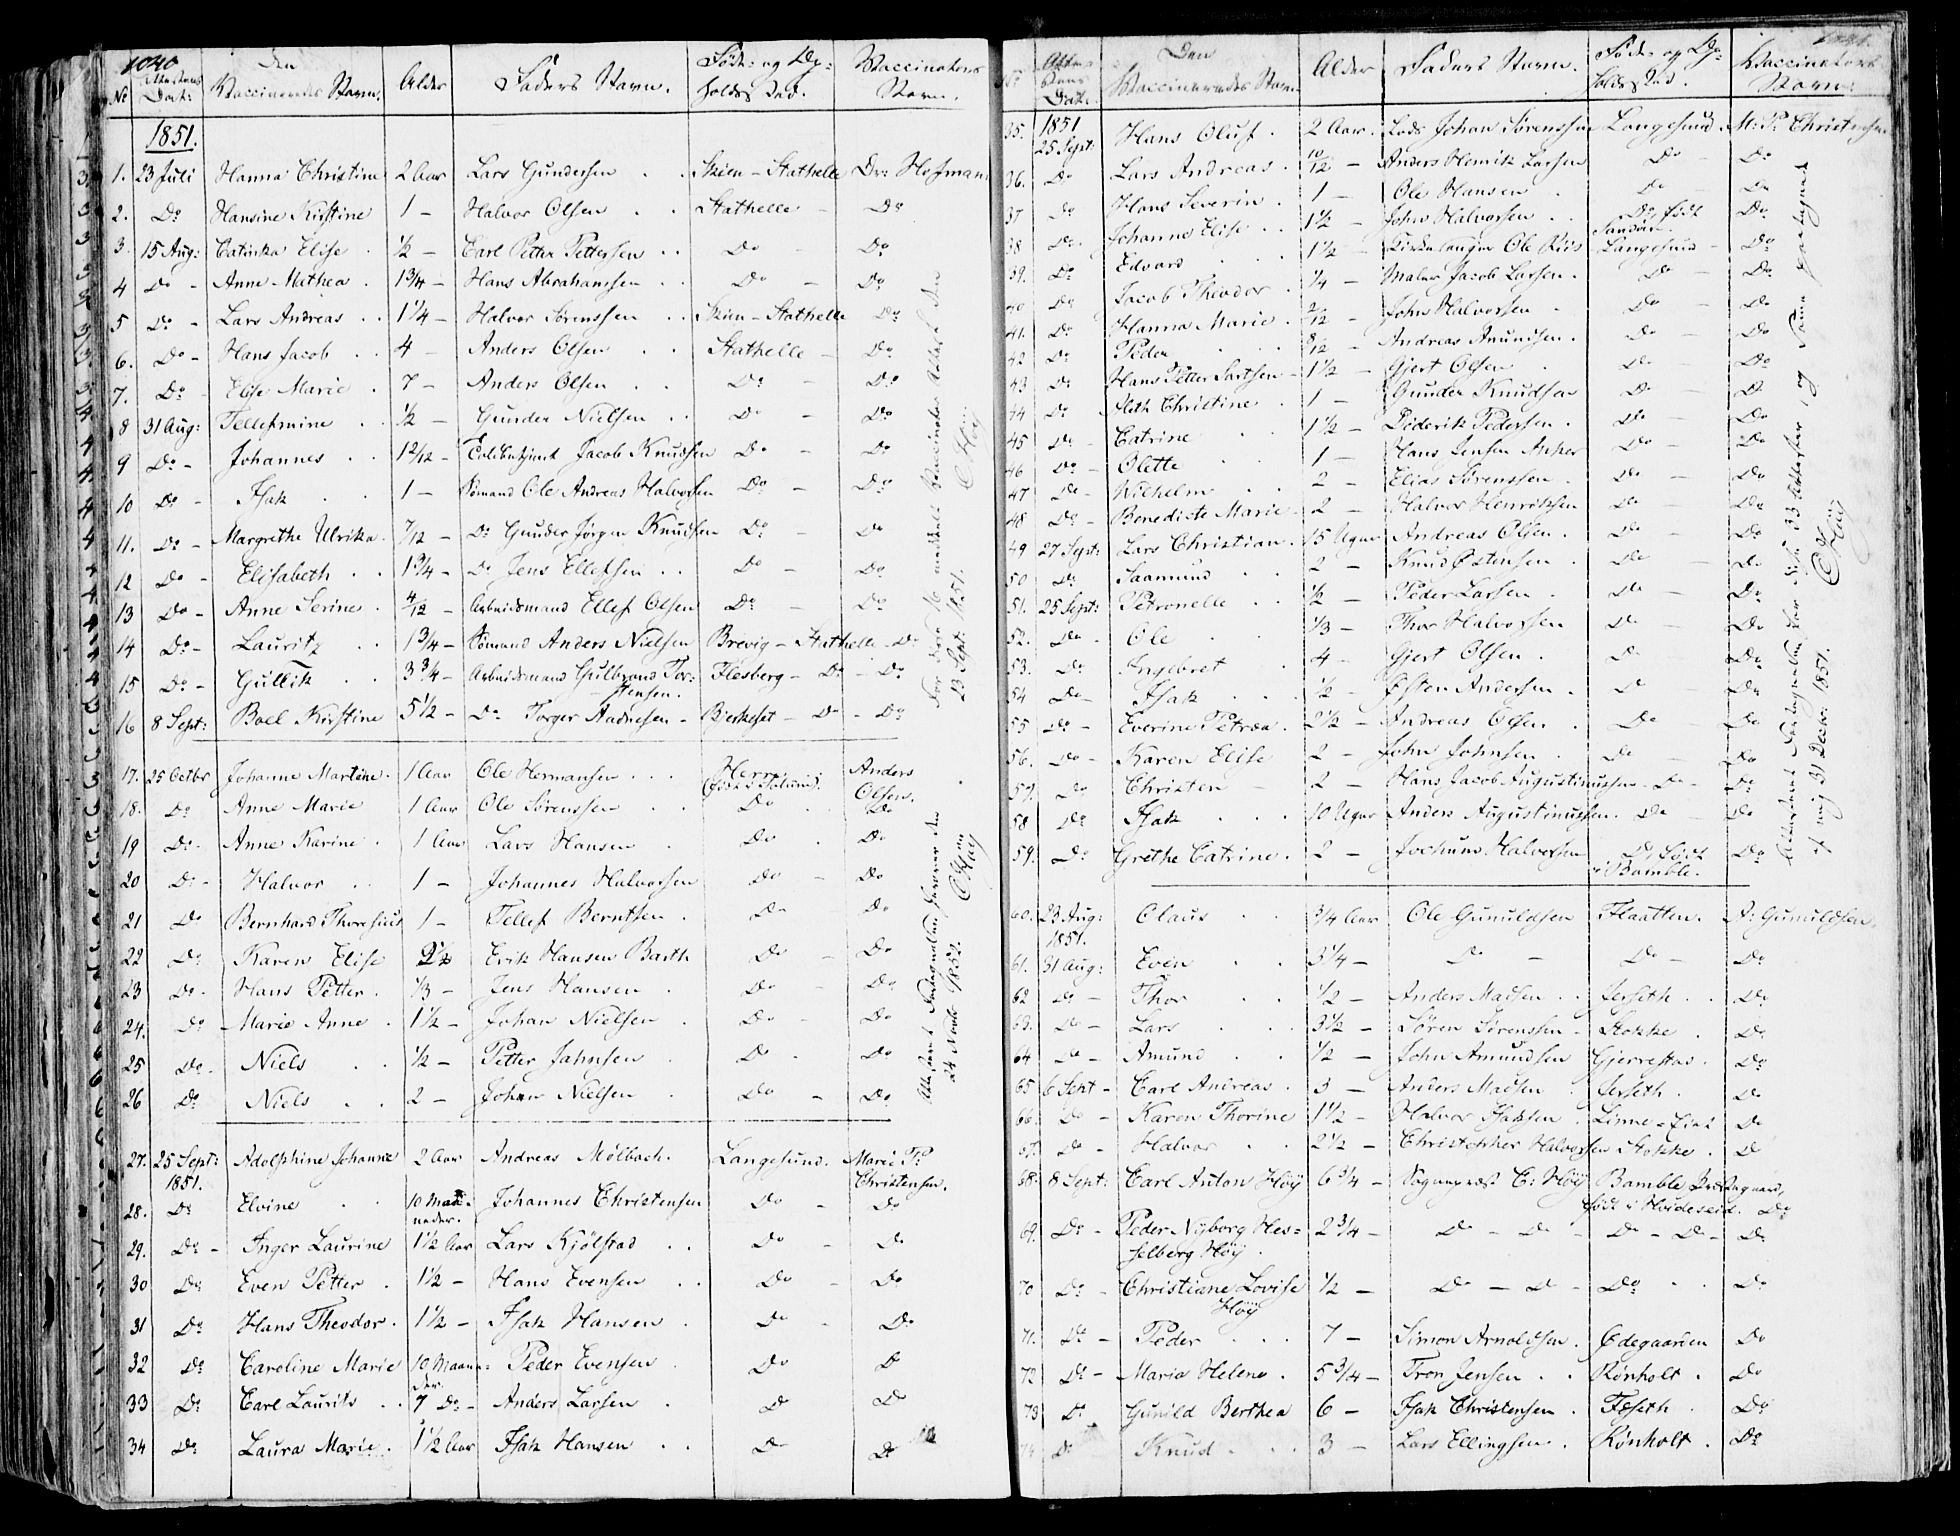 1040
Attestens Dat:
Den
Nº Vaccineredes Navn. Alder Faders Navn. Føde- og Op-holdssted. Vaccinators Navn.
1851.
1. 23 Juli Hanna Christine 2 Aar Lars Gundersen Skien - Stathelle Dr: Hofman
2. Do Hansine Kirstine 1 - Halvor Olsen Stathelle - Do
3. 15 Aug: Catinka Elise ½ - Carl Petter Pettersen Do - Do
4 Do - Anne Mathea 1¾ - Hans Abrahamsen Do - Do
5 Do - Lars Andreas 1¼ - Halvor Sørenssen Skien - Stathelle Do
6. Do - Hans Jacob 4 - Anders Olsen Stathelle - Do
7. Do - Elise Marie 7 - Anders Olsen Do - Do
8 31 Aug: Tellefmine ½ - Gunder Nielsen Do - Do
9 Do - Johannes 1 2/12 - Jacob Knudsen Do - Do
10 Do - Isak 1 - Sømand Ole Andreas Halvorsen Do - Do
11. Do - Margrethe Ulrika 7/12 - Do Gunder Jørgen Knudsen Do - Do
12 Do - Elisabeth 1¾ - Do Jens Ellefsen Do - Do
13 Do - Anne Serine 4/12 - Arbeidsmand Ellef Olsen Do - Do
14 Do - Lauritz 1¾ - Sømand Anders Nielsen Brevig - Stathelle - Do
15 Do - Gullik 3¾ - Arbeidsmand Gulbrand Tor-stensen. Flesberg - Do - Do
16 8 Sept: Boel Kirstine 5½ - Do Torger Aadnesen - - Do - Do
For disse 16 meddelt Vaccinations Attest den
23 Sept: 1851. C Høy
17. 25 Octbr Johanne Martine. 1 Aar Ole Hermansen Herre Anders Olsen.
18. Do Anne Marie 1 Aar Ole Sørenssen Do Do
19 Do - Anne Karine 1 Aar Lars Hansen Do Do
20 Do - Halvor 1 - Johannes Halvorsen Do - Do
21 Do Bernhard Thoresius 1 - Tellef Berntsen Do - Do
22 Do Karen Elise 2½ Erik Hansen Barth Do - Do
23 Do - Hans Petter 1/3 - Jens Hansen Do - Do
24. Do Marie Anne 1½ - Johan Nielsen Do - Do
25 Do - Niels ½ - Petter Jahnsen Do - Do
26 Do Niels 2 - Johan Nielsen Do - Do
24 Novbr 1852. C Høy
27. 25 Sept: 1851. Adolphine Johanne 2 Aar Andreas Mølbach. Langesund. Marie P: Christensen.
28. Do Elvine 10 Maa-neder. Johannes Christensen Do - Do
29. Do - Inger Laurine 1½ Aar Lars Kjølstad Do - Do
30 Do Even Petter 1½ - Hans Evensen Do - Do
31 Do Hans Theodor 1½ - Isak Hansen Do - Do
32 Do Caroline Marie 10 Maane-der. Peder Evensen Do Do
33 Do Carl Laurits 7 Do - Anders Larsen Do Do
34 Do Laura Marie 1½ Aar Isak Hansen Do - Do
1041.
Nº Attestens Dat: Den Vaccineredes Navn Alder Faders Navn. Føde- og Op-holdssted. Vaccinators Navn.
35. 1851 25 Sept: Hans Oluf 2 Aar Lods Johan Sørenssen Langesund M: P: Christensen
36. Do Lars Andreas 10/12 - Anders Henrik Larsen Do - Do
37 Do Hans Severin 1 - Ole Hansen Do - Do
38 Do Johanne Elise 1½ - John Halvorsen Do, født Do
39. Do Edvard 1½ - Kirkesanger Ole Riis Langesund - Do
40 Do Jacob Theodor ¼ - Maler Jacob Larsen Do - Do
41. Do Hanna Marie 2/12 - John Halvorsen Do - Do
42 Do Peder 8/12 - Andreas Amundsen. Do - Do
43 Do Hans Petter 1½ - Gjert Olsen Do Do
44 Do Christine 1 - Gunder Knudsen Do - Do
45 Do - Catrine 1½ - Pedersen Do - Do
46 Do - Olette 1 - Hans Jensen Do - Do
47 Do - Wilhelm 2 - Elias Sørenssen Do - Do
48 Do - Benedicte Marie 2 - Halvor Henriksen Do Do
49 27 Sept: Lars Christian 15 Uger Andreas Olsen Do - Do
50 Do Saamund 2 - Knud Østensen Do - Do
51. 25 Sept: Petronelle ½ - Peder Larsen Do - Do
52. Do - Ole 1/3 - Thor Halvorsen Do - Do
53. Do Ingebret 4 - Gjert Olsen Do Do
54 Do - Isak ½ - Østen Andersen Do - Do
55 Do - Everine Petrea 2½ - Andreas Olsen Do - Do
56. Do - Karen Elise 2 - John Johnsen Do - Do
57. Do Christen 2 - Hans Jacob Augustinussen - Do - Do
58 Do Isak 10 Uger Anders Augustinussen Do - Do
59. Do Grethe Catrine 2 - Jochum Halvorsen Do, født i Bamble. Do
af mig 31 Decbr: 1851. C Høy
60. 23 Aug: 1851. Claus ¾ Aar Ole Gunuldsen Flaatten. A: Gunuldsen.
61. 31 Aug: Even 3¼ - Do - Do - Do
62 Do - Thor ½ - Anders Madsen Do
63. Do - Lars 3½ - Søren Sørenssen - Stokke. Do
64 Do - Amund ½ - John Amundsen Gjerrestad Do
65 6 Sept - Carl Andreas 3 - Anders Madsen Do
66. Do - Karen Thorine 1½ - Halvor Isaksen Do
67. Do - Halvor 2½ - Christopher Halvorsen Stokke. Do
68. 8 Sept: Carl Anton Høy 6¾ - Sognepræst C: Høy Bamble Præstegaard, født i Hvideseid. Do
69. Do - Peder Nyborg Hes-selberg Høy. 2¾ - Do - Do - Do - Do - Do
70 Do - Christiane Lovise Høy ½ - Do - Do - Do Do
71. Do - Peder 7 - Simon Arnoldsen Ødegaarden Do
72 Do - Maria Helene 5¾ - Tron Jensen Rønholt Do
73 Do Gunild Berthea 6 - Isak Christensen Feseth Do
74 Do Knud 3 - Lars Ellingsen Rønholt Do